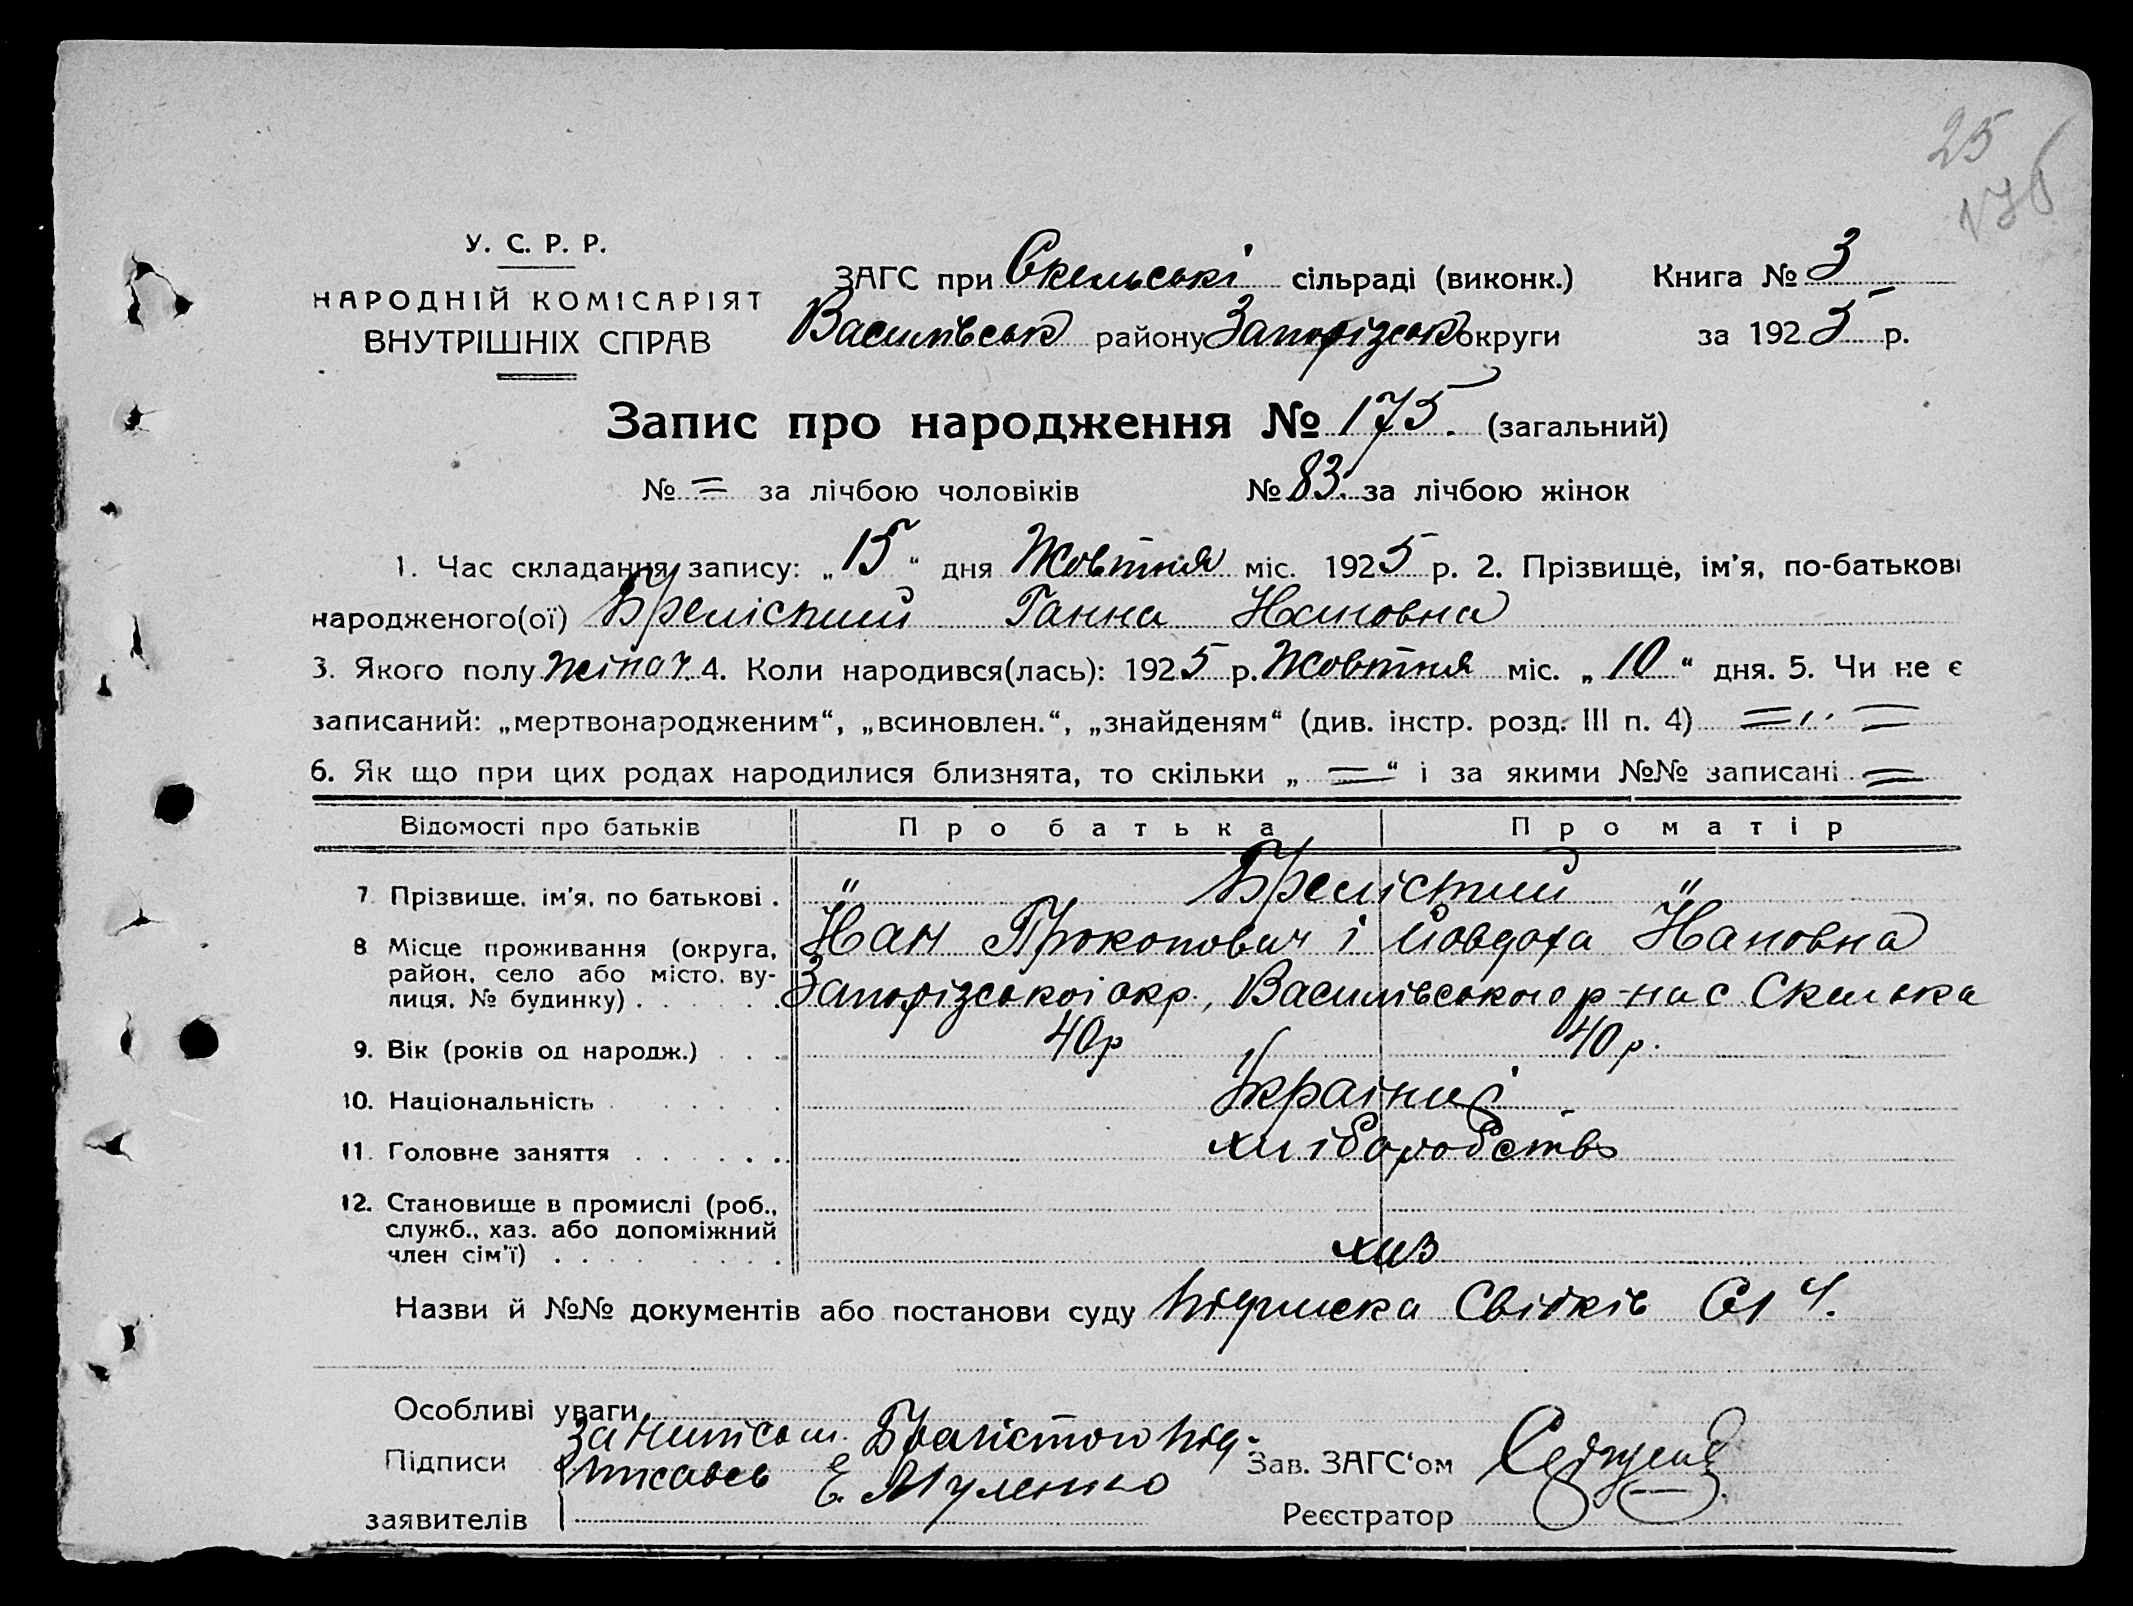 25
176
У. С. Р. Р.
НАРОДНІЙ КОМІСАРІЯТ
ВНУТРІШНІХ СПРАВ
ЗАГС при Скельські сільраді (виконк.) Книга № 3
Василівськ району Запорізськ округи за 1925 р.
Запис про народження № 175. (загальний)
№ = за лічбою чоловіків № 83. за лічбою жінок
1. Час складання запису: „15“ дня Жовтня міс. 1925 р. 2. Прізвище, ім'я, по-батькові
народженого(ої) Ганна
3. Якого полу жіноч. 4. Коли народився(лась): 1925 р. Жовтня міс. „10“ дня. 5. Чи не є
записаний: „мертвонародженим“, „всиновлен.“, „знайденям“ (див. інстр. розд. III п. 4) = „ =
6. Як що при цих родах народилися близнята, то скільки „=“ і за якими №№ записані =
Відомості про батьків Про батька Про матір
7. Прізвище, ім'я, по батькові . „ „
8 Місце проживання (округа, Прокопович і Йовдоха
район, село або місто, ву-
лиця, № будинку) . . . . . . Запорізськоі окр., Василівського р-на с Скелька
9. Вік (років од народж.) . . . 40р 40р.
10. Національність . . . . . . Українці
11. Головне заняття . . . . . . хліборобство
12. Становище в промислі (роб.,
служб., хаз. або допоміжний
член сім'ї) . . . . . . . .
Назви й №№ документів або постанови суду Підписка Свідків
Особливі уваги
Підписи За підписався Е. Муленко Зав. ЗАГС'ом
заявителів Реєстратор